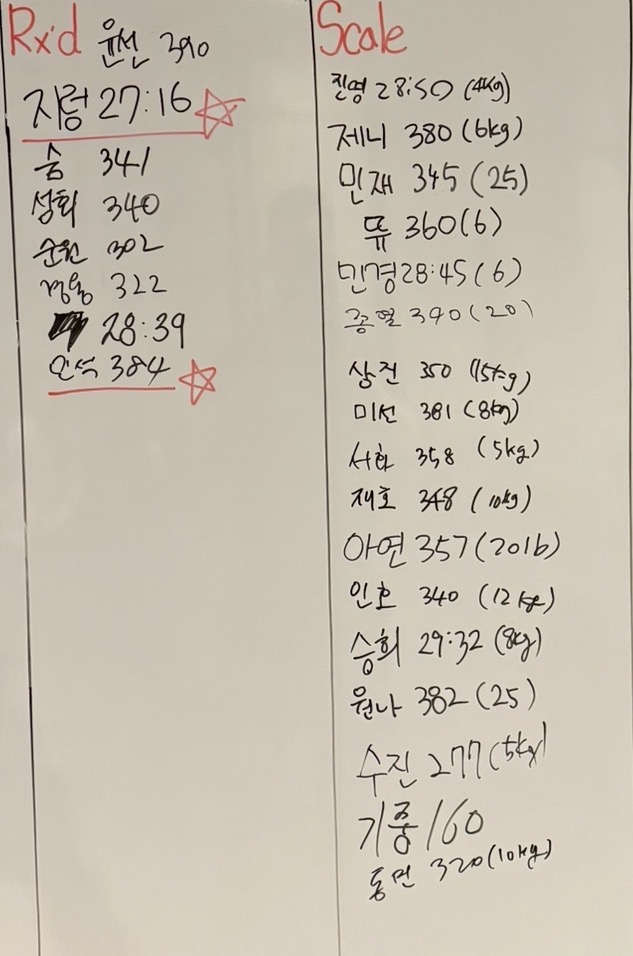 Rx'd 윤선 390
지렁 27:16
숨 341
성회 340
순원 302
322
28:39
인석 384
Scale
진영 28:50 (4kg)
제니 380 (6kg)
민재 345 (25)
뜌 360 (6)
민경 28:45 (6)
390 (20)
상진 350 (15kg)
미선 381 (8kg)
서화 358 (5kg)
재호 348 (10kg)
아연 357 (20lb)
인호 340 (12kg)
승희 29:32 (8kg)
원나 382 (25)
수진 277 (5kg)
기중 160
동면 320 (10kg)